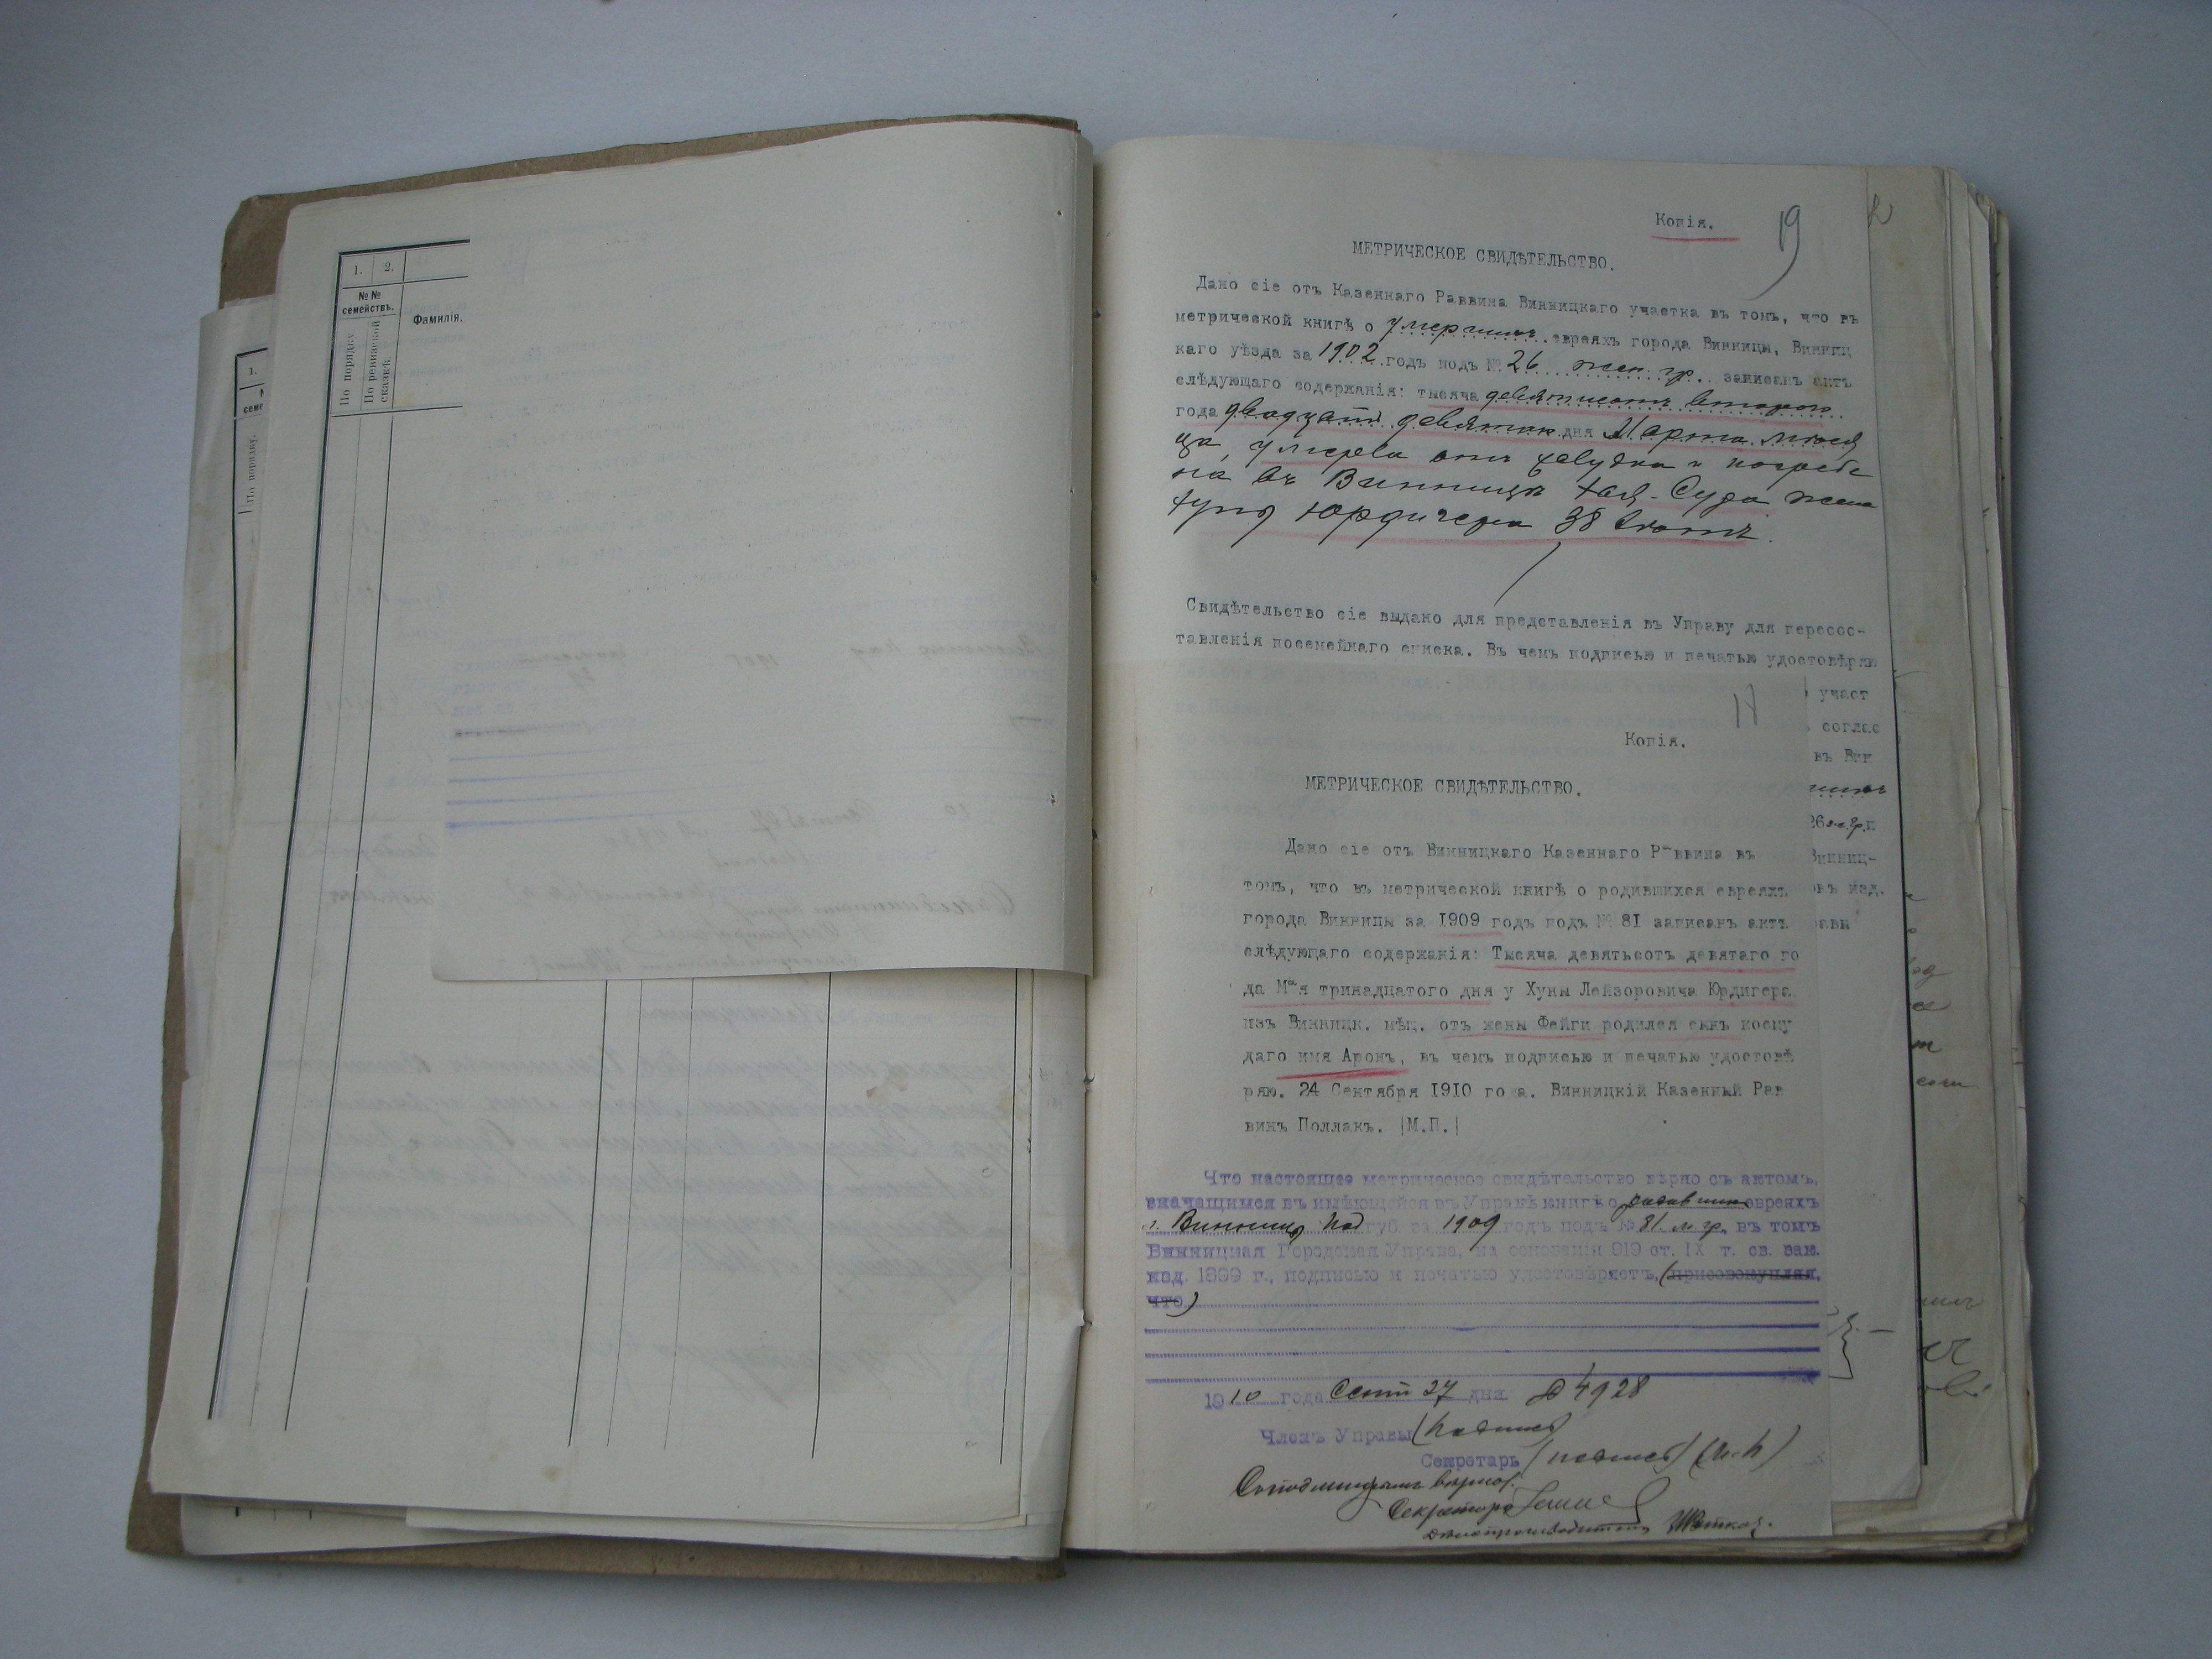 1. 2.
№№ семействъ.
По порядку
По ревизской сказкѣ.
Фамилія.
1.
По порядку.
Копія.
19
МЕТРИЧЕСКОЕ СВИДѢТЕЛЬСТВО.
Дано сіе отъ Казеннаго Раввина Винницкаго участка въ томъ, что въ
метрической книгѣ о умершихъ евреяхъ города Винницы, Винниц
каго уѣзда за 1902 годъ подъ № 26 жен. гр. записанъ актъ
слѣдующаго содержанія: тысяча девятьсотъ второго
года двадцать девятаго дня Марта мѣся
ца, умерла отъ и погребе
на въ Винницѣ Хая-Сура жена
Хуны Юрдигера 38 лѣтъ.
Свидѣтельство сіе выдано для представленія въ Управу для пересос-
тавленія посемейнаго списка. Въ чемъ подписью и печатью удостовѣряю
участ
соглас
въ Вин
26
Винниц-
изд.
17
Копія.
МЕТРИЧЕСКОЕ СВИДѢТЕЛЬСТВО.
Дано сіе отъ Винницкаго Казеннаго Раввина въ
томъ, что въ метрической книгѣ о родившихся евреяхъ
города Винницы за 1909 годъ подъ № 81 записанъ актъ
слѣдующаго содержанія: Тысяча девятьсотъ девятаго го
да Мая тринадцатого дня у Хуны Лейзоровича Юрдигера
изъ Винницк. мѣщ. отъ жены Фейги родился сынъ коему
даго имя Аронъ, въ чемъ подписью и печатью удостовѣ
ряю. 24 Сентября 1910 года. Винницкій Казенный Рав
винъ Поллакъ. |М.П.|
Что настоящее метрическое свидѣтельство вѣрно съ актомъ,
значущимся въ имѣющейся въ Управѣ книгѣ о родивших евреяхъ
г. Винницы Под губ. за 1909 годъ подъ № 81 м. гр. въ томъ
Винницкая Городская Управа, на основаніи 919 ст. IX т. св. зак.
изд. 1899 г., подписью и печатью удостовѣряетъ, (присовокупляя,
что)
1910 года Сент 27 дня № 4928
Членъ Управы (подпись)
Секретарь (подпись) (М.П)
Съ подлиннымъ вѣрно:
Секретарь
Дѣлопроизводитель